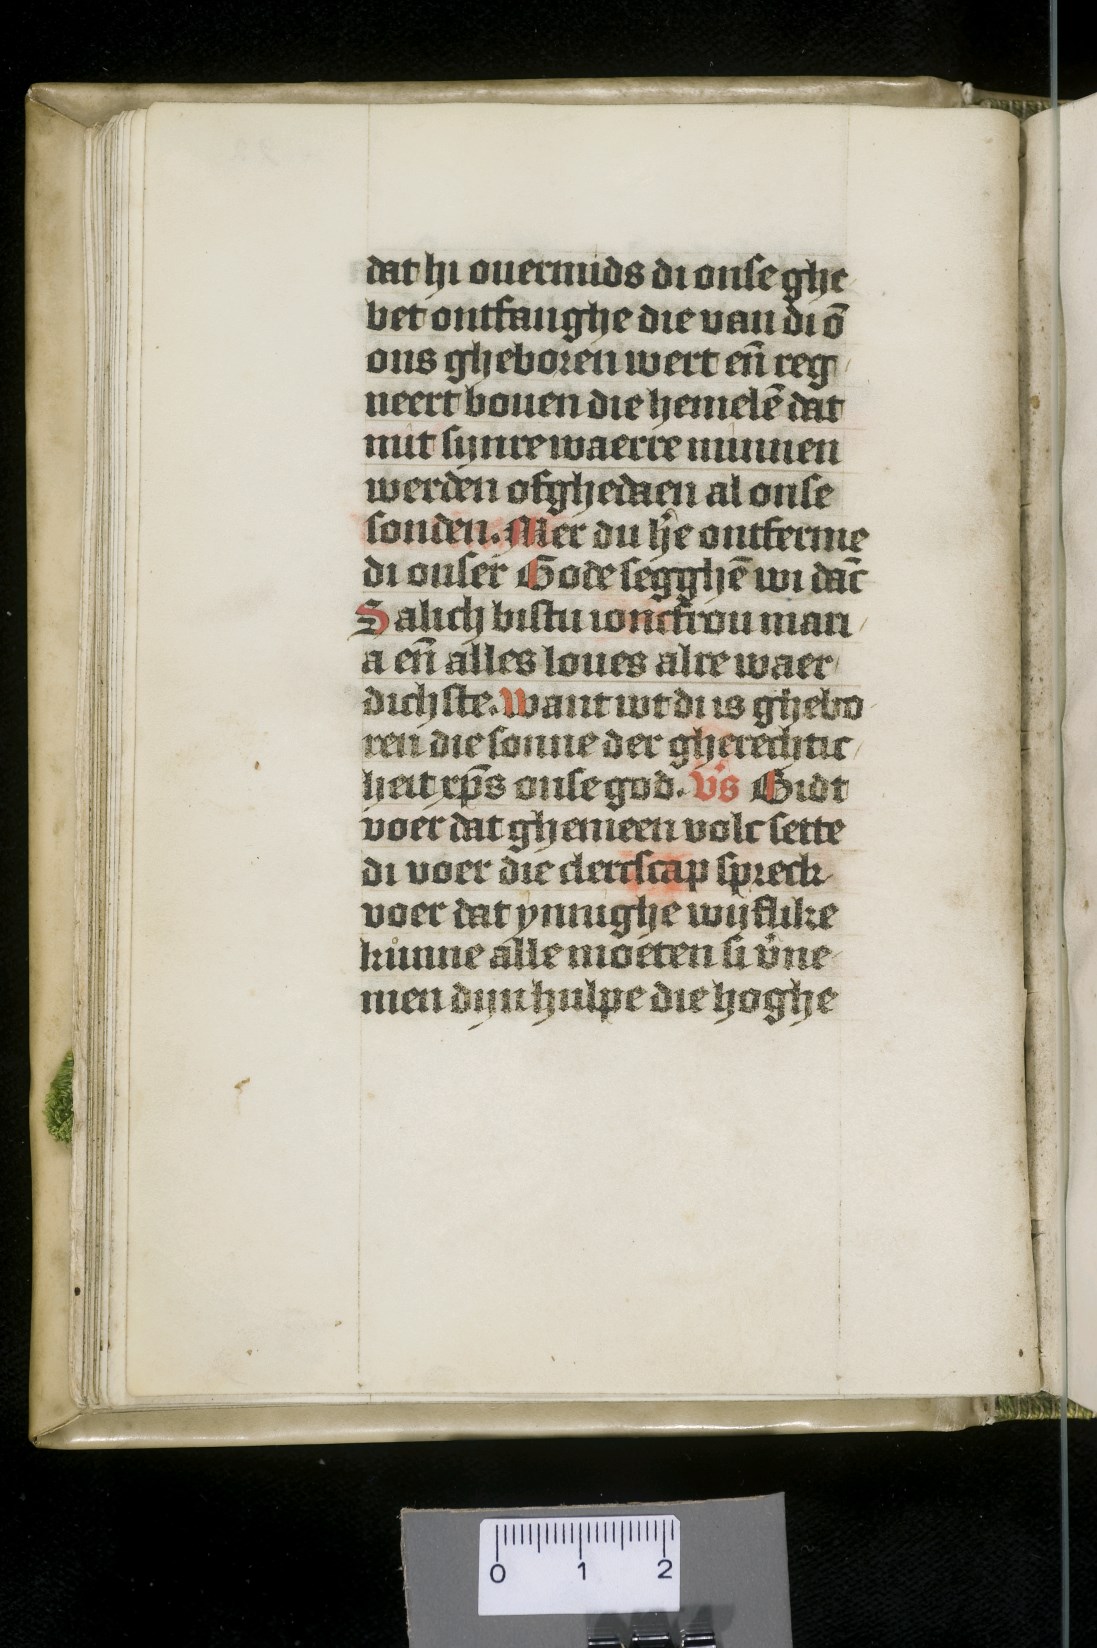 dat hi ouermids di onse ghe
bet ontfanghe die van di ō
ons gheboren wert eñ reg
neert bouen die hemelē dat
mit sijnre waerre minnen
werden ofghedaen al onse
sonden. Mer du h̄e ontferme
di onser Gode segghē wi dāc
Salich bistu ioncfrou mari
a eñ alles loues alre waer
dichste. Want wt di is ghebo
ren die sonne der gherechtic
heit xp̄s onse god. v̄s Bidt
voer dat ghemeen volc sette
di voer die clercscap spreck
voer dat ynnighe wijflike
kunne alle moeten si v̄ne
men dijn hulpe die hoghe
0 1 2